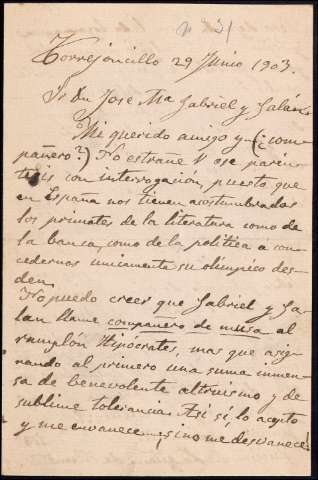 n 31
Torrejoncillo 29 Junio 1903.
Sr Dn Jose Ma Gabriel y Galán.
Mi querido amigo y (¿com
pañero?) No estrañe V ese parén
tesis con interrogación, puesto que
en España nos tienen acostumbrados
los primates de la literatura como de
la banca, como de la política á con
cedernos unicamente su olímpico des-
den.
No puedo creer que Gabriel y Ga-
lan llame compañero de musa al
ramplón Hipócrates, mas que asig-
nando al primero una suma inmen-
sa de benevolente altruismo y de
sublime tolerancia. Asi sí, lo acepto
y me envanece, sino me desvanece